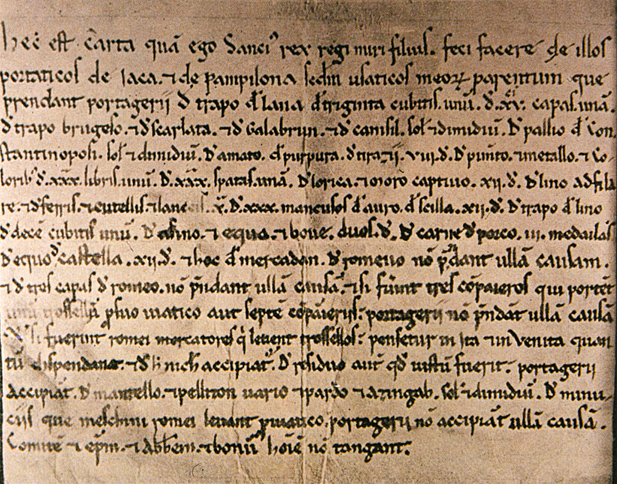 hec est Carta quā ego Sanci⁹ rex regi miri filius. feci facere de illos
portaticos de Iaca. ⁊ de pampilona scđm usaticos meoꝝ parentum que
prendant portagerii. D̄ trapo đ lana đ triginta cubitis. unū. đ. xv. capas. unā.
D̄ trapo brugeso. ⁊ đ scarlata. ⁊ đ galabrun. ⁊ đ cansil. sot ⁊ dimidiū. D̄ pallio đ Con
stantinopoli. sot ⁊ dimidiū. D̄ amato. đ purpura. đ tirazii. viii. đ. D̄ pumto. ⁊ metallo. ⁊ co
lorib⁹. đ. xxx. libris. unū. D̄. xxx. spatas. unā. D̄ lorica. ⁊ moro captiuo. xii. đ. D̄ lino ad fila
re. ⁊ đ ferris. ⁊ cutellis. ⁊ lanceis. x. D̄. xxx. mancusos đ auro. đ scilla. xii. đ. D̄ trapo đ lino
đ decē cubitis unū. D̄ asino. ⁊ equa. ⁊ boue. duos. đ. D̄ carne đ porco. iii. medallas
D̄ equo đ castella. xii. đ. ⁊ hoc đ mercadan. D̄ romeuo nō p̄ndant ullā causam.
⁊ đ tros capas đ romeo. nō p̄ndant ullā causā. ⁊ si fuīnt tres cōpaieros qui portēt
unū trossellū p suo uiatico aut septē cōpaieros: portagerii nō p̄ndāt ullā causā
D̄ si fuerunt romei mercatores q̄ leuent trossellos: pensetur in ita ⁊ in uenita quan
tū dispendant. ⁊ đ hī nich̄ accipiat. D̄ residuo aut q̄d uistū fuerit. portagerii
Accipiāt. D̄ mantello. ⁊ pelliton uario ⁊ pardo ⁊ azingab. sot ⁊ dimidiū. D̄ minu
ciis que meschini romei leuant p uiatico. portagerii nō accipiāt ullā causā.
Comite ⁊ ep̄m. ⁊ Abbem. ⁊ bonū hoīe nō tangant.